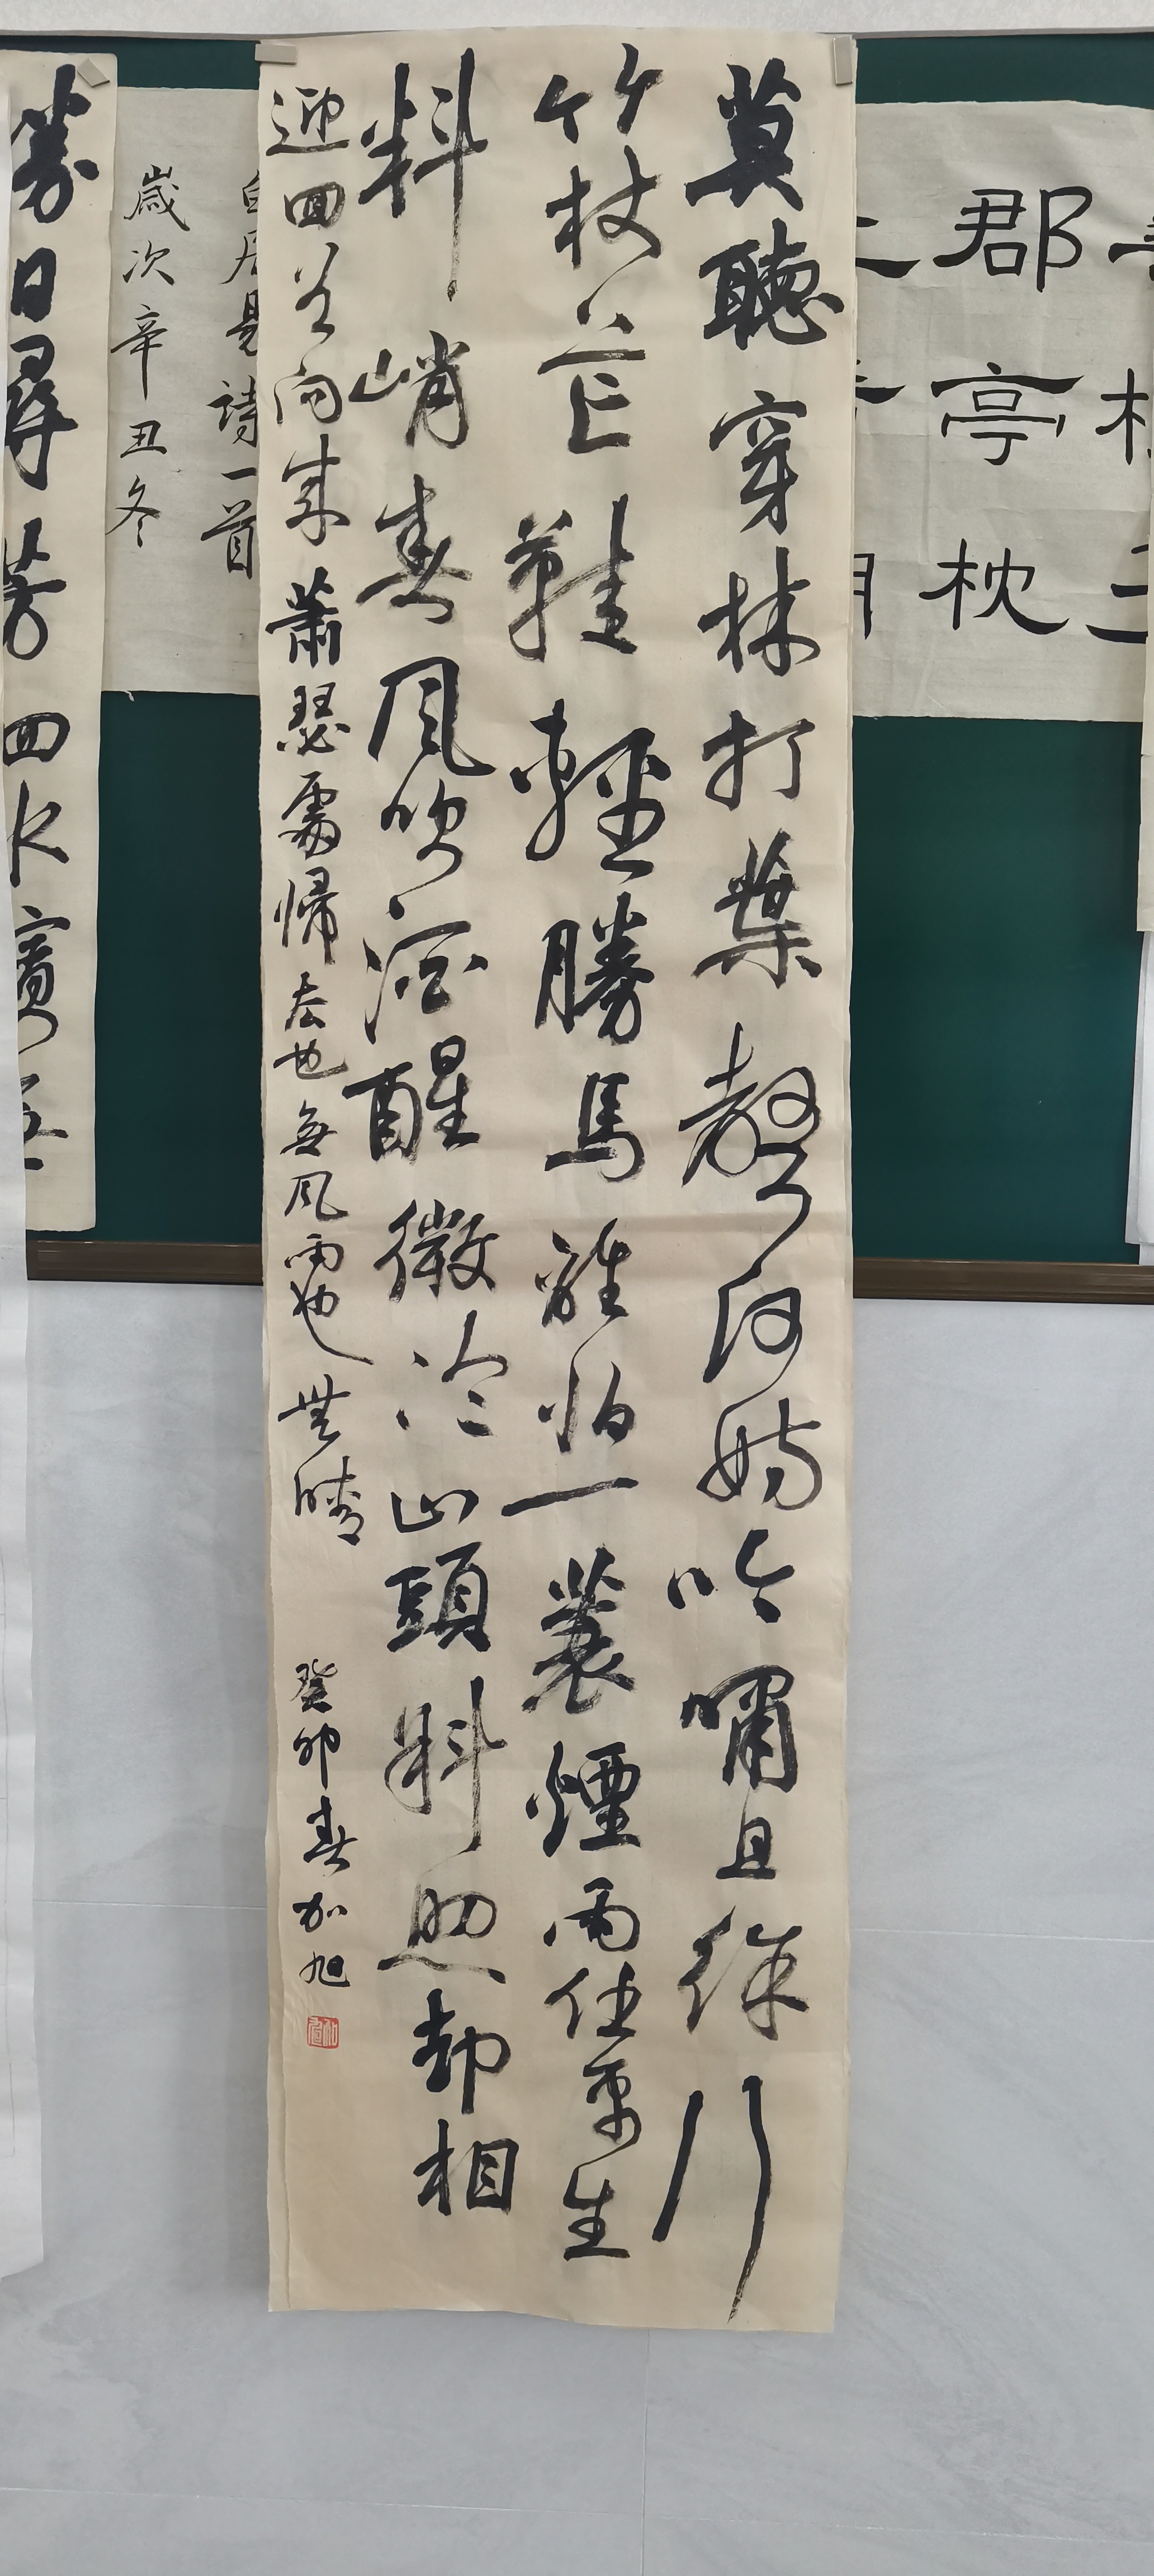 郡亭枕
莫聽穿林打葉聲何妨吟嘯且徐行
竹杖芒鞋輕勝馬誰怕一蓑煙雨任平生
料峭春風吹酒醒微冷山頭斜照却相
迎回首向來蕭瑟處歸去也無風雨也無晴 癸卯春加旭
白居易詩一首
歲次辛丑冬
勝日尋芳泗水濱無